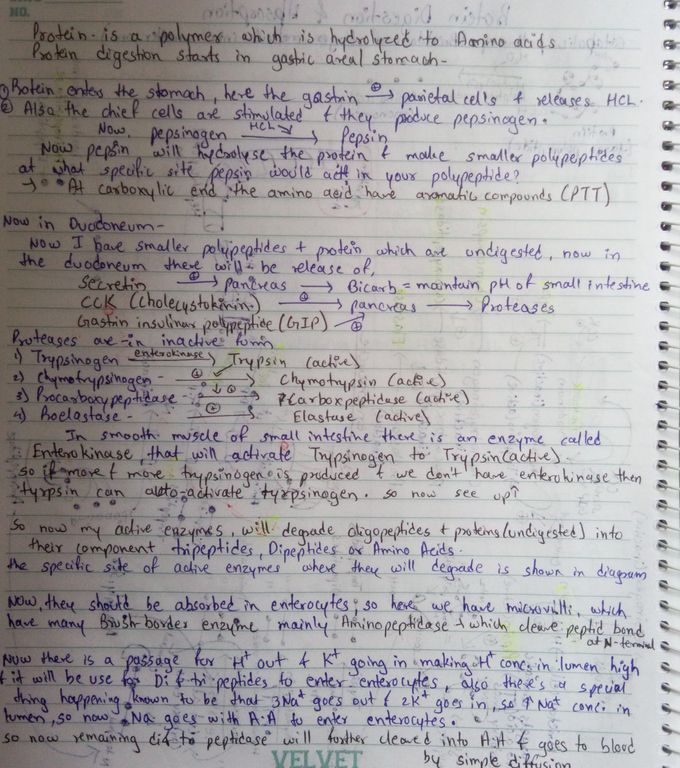 NO.
Protein is a polymer which is hydrolyzed to Amino acids
Protein digestion starts in gastric areal stomach-
① Protein enters the stomach, here the gastrin ⊕→ parietal cells & releases HCL.
② Also the chief cells are stimulated & they produce pepsinogen.
Now. pepsinogen HCL→ Pepsin
Now pepsin will hydrolyse the protein & make smaller polypeptides
at what specific site pepsin would act in your polypeptide?
→ At carboxylic end the amino acid have aromatic compounds (PTT)
Now in Duodoneum-
Now I have smaller polypeptides + protein which are undigested, now in
the duodoneum there will be release of,
Secretin ⊕→ pancreas → Bicarb = maintain pH of small intestine
CCK (cholecystokinin) ⊕→ pancreas → Proteases
Gastin insulinar polypeptide (GIP) ⊕
Proteases are in inactive form
1) Trypsinogen enterokinase→ Trypsin (active)
2) Chymotrypsinogen - ⊕→ Chymotrypsin (active)
3) Procarboxypeptidase ↓⊕→ Carboxpeptidase (active)
4) Proelastase - ⊕→ Elastase (active)
In smooth muscle of small intestine there is an enzyme called
Enterokinase, that will activate Trypsinogen to Trypsin(active).
so if more & more trypsinogen is produced & we don't have enterokinase then
tyrpsin can auto-activate tyrpsinogen. so now see up↑
So now my active enzymes, will degrade oligopeptides + proteins(undigested) into
their component tripeptides, Dipeptides or Amino Acids.
the specific site of active enzymes where they will degrade is shown in diagram
Now, they should be absorbed in enterocytes, so here we have microvilli, which
have many Brush border enzyme mainly Aminopeptidase & which cleave peptid bond
at N-terminal
Now there is a passage for H⁺ out & K⁺ going in making H⁺ conc. in lumen high
& it will be use for Di & tri peptides to enter enterocytes, also there's a special
thing happening known to be that 3Na⁺ goes out & 2K⁺ goes in, so ↑Na⁺ conc. in
lumen, so now Na goes with A.A to enter enterocytes.
so now remaining di & tri peptidase will further cleaved into A.A & goes to blood
by simple diffusion
VELVET